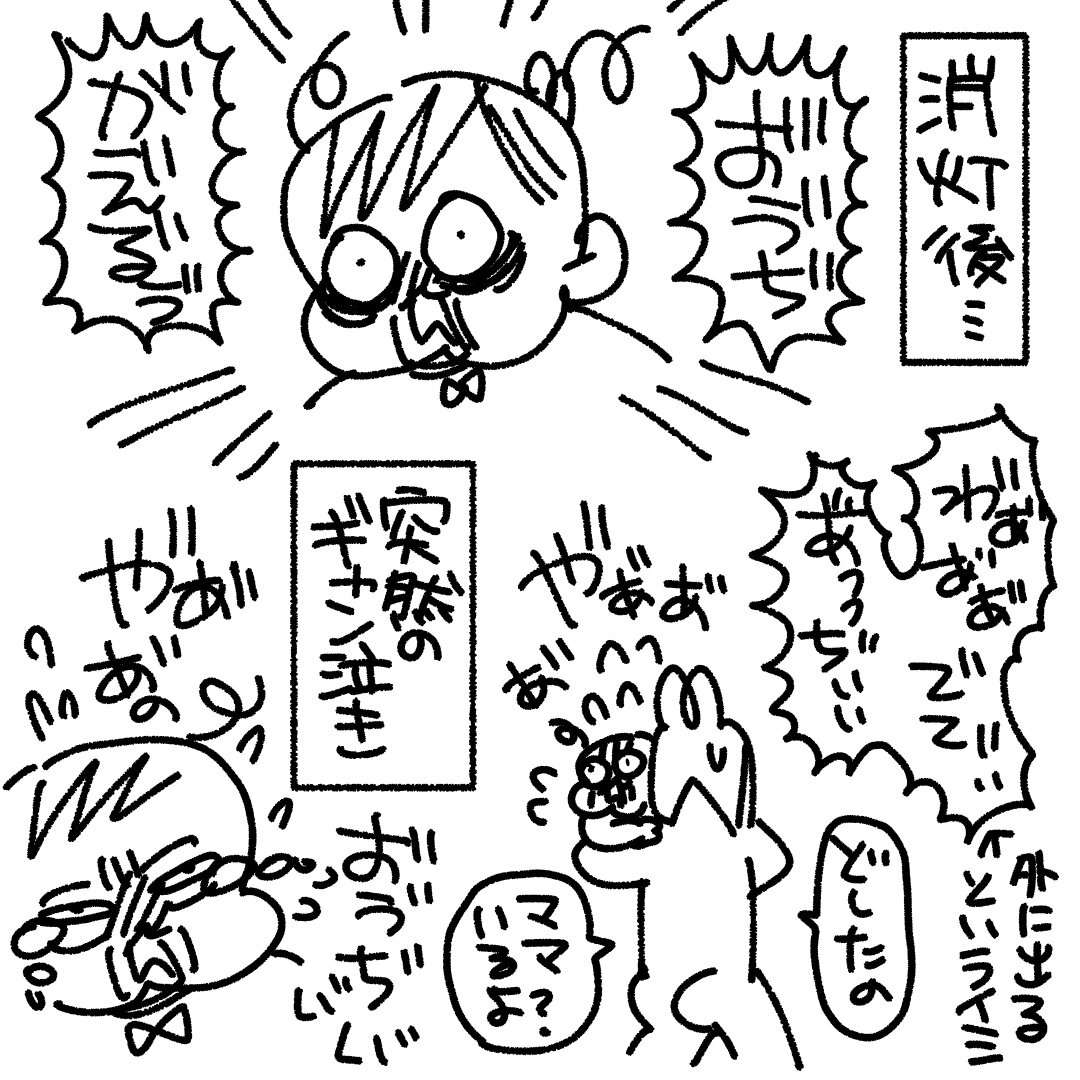 消灯後…
お゛う゛ち゛
か゛え゛る゛ぅ゛
わ゛ぁ゛あ゛あ゛
ここ゛
あ゛っっち゛ぃ゛ぃ゛
↑外に出る
というイミ
どしたの
ママ
いるよ?
や゛ぁ゛あ゛
あ゛
突然の
ギャン泣き
や゛ぁ゛
あ゛の
お゛う゛ち゛
い゛く゛